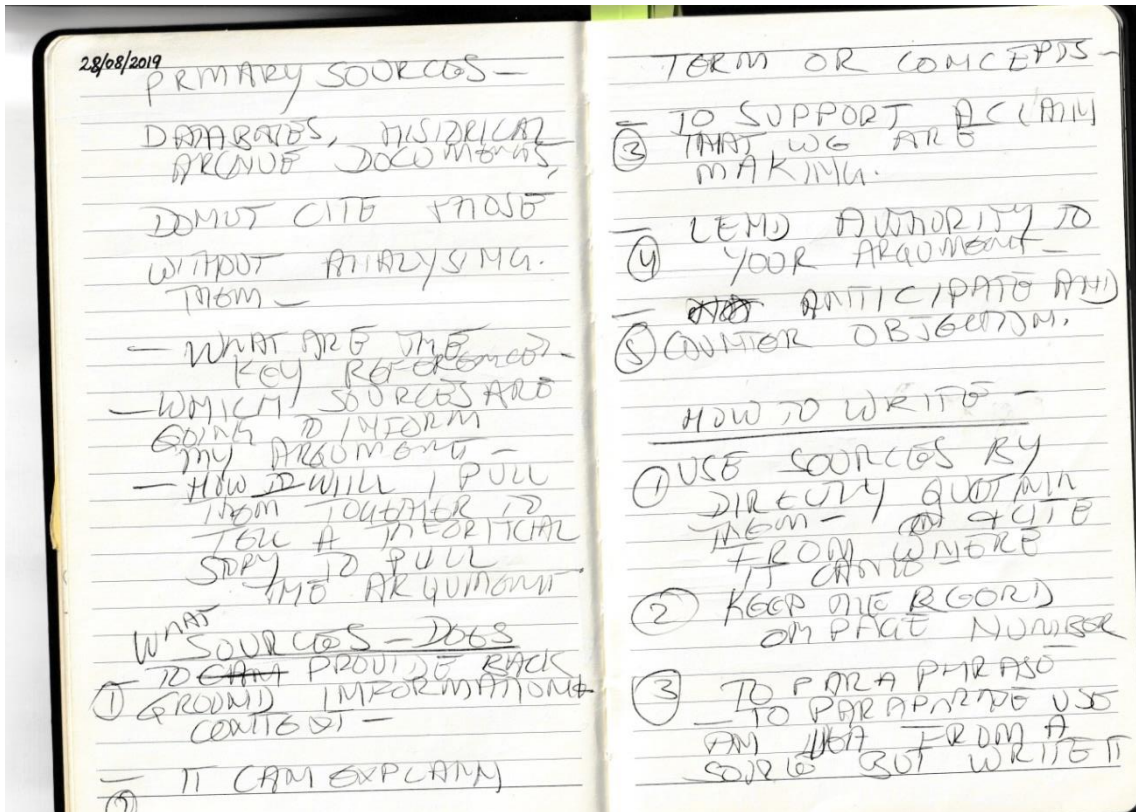 28/08/2019
PRMARY SOURCES —
DATABATES, HISTORICAL
ARCHIVE DOCUMENTS,
DO NOT CITE THOSE
WITHOUT ANALYSING.
THEM —
— WHAT ARE THE
KEY REFERENCES —
— WHICH SOURCES ARE
GOING TO INFORM
MY ARGUMENT —
— HOW WILL I PULL
THEM TOGETHER TO
TELL A THEORITICAL
STORY TO PULL
THE ARGUMENT
WHAT
SOURCES — DOES
— TO CAN PROVIDE BACK
① GROUND INFORMATION &
CONTEXT —
— IT CAN EXPLAIN
②
TERM OR CONCEPTS —
— TO SUPPORT A CLAIM
③ THAT WE ARE
MAKING.
— LEND AUTHORITY TO
④ YOUR ARGUMENT —
— ANTICIPATE AND
⑤ COUNTER OBJECTION.
HOW TO WRITE —
① USE SOURCES BY
DIRECTLY QUOTING
THEM — & CITE
FROM WHERE
IT CAME
② KEEP THE RECORD
ON PAGE NUMBER
③ TO PARA PHRASE
— TO PARAPHRASE USE
AN IDEA FROM A
SOURCE BUT WRITE IT